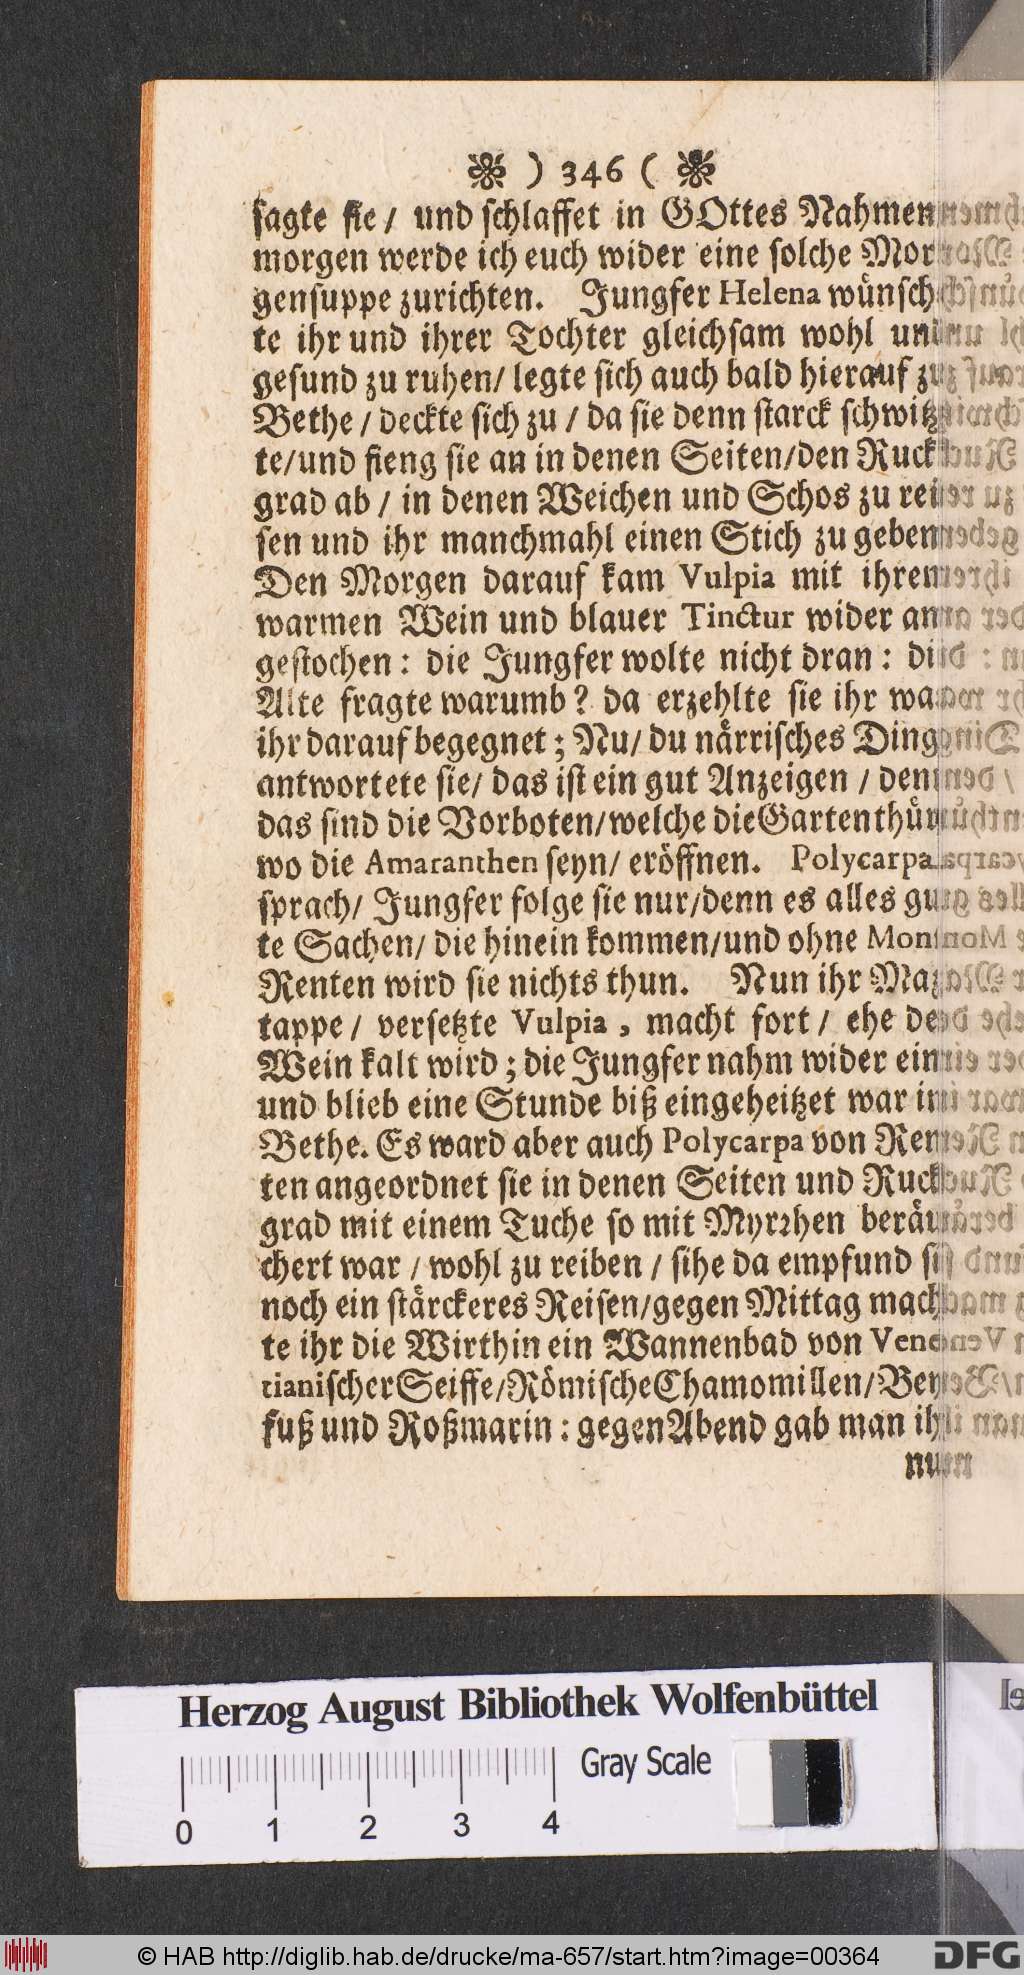 ) 346 (
sagte sie / und schlaffet in GOttes Nahmen
morgen werde ich euch wider eine solche Mor
gensuppe zurichten. Jungfer Helena wünsch
te ihr und ihrer Tochter gleichsam wohl und
gesund zu ruhen / legte sich auch bald hierauf zu
Bethe / deckte sich zu / da sie denn starck schwitz
te / und fieng sie an in denen Seiten / den Ruck
grad ab / in denen Weichen und Schos zu reis
sen und ihr manchmahl einen Stich zu geben
Den Morgen darauf kam Vulpia mit ihrem
warmen Wein und blauer Tinctur wider an
gestochen: die Jungfer wolte nicht dran: die
Alte fragte warumb? da erzehlte sie ihr was
ihr darauf begegnet; Nu / du närrisches Ding
antwortete sie / das ist ein gut Anzeigen / denn
das sind die Vorboten / welche die Gartenthür
wo die Amaranthen seyn / eröffnen. Polycarpa
sprach / Jungfer folge sie nur / denn es alles gu
te Sachen / die hinein kommen / und ohne Mon
Renten wird sie nichts thun. Nun ihr Maz
tappe / versetzte Vulpia, macht fort / ehe der
Wein kalt wird; die Jungfer nahm wider ein
und blieb eine Stunde biß eingeheitzet war im
Bethe. Es ward aber auch Polycarpa von Ren
ten angeordnet sie in denen Seiten und Ruck
grad mit einem Tuche so mit Myrrhen beräu
chert war / wohl zu reiben / sihe da empfund sie
noch ein stärckeres Reisen / gegen Mittag mach
te ihr die Wirthin ein Wannenbad von Vene
tianischer Seiffe / Römische Chamomillen / Bey
fuß und Roßmarin: gegen Abend gab man ihr
nun
Herzog August Bibliothek Wolfenbüttel
Gray Scale
0 1 2 3 4
© HAB http://diglib.hab.de/drucke/ma-657/start.htm?image=00364
DFG